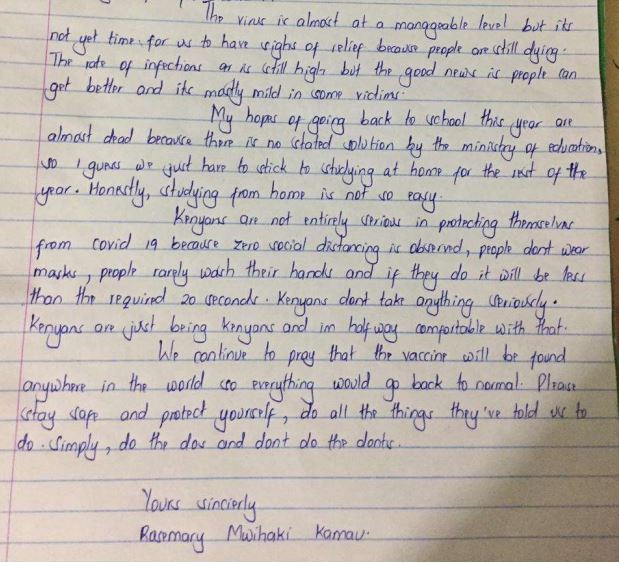 The virus is almost at a manggeable level but its
not yet time for us to have sighs of relief because people are still dying.
The rate of infections is still high but the good news is people can
get better and its mostly mild in some victims.
My hopes of going back to school this year are
almost dead because there is no stated solution by the ministry of education,
so I guess we just have to stick to studying at home for the rest of the
year. Honestly, studying from home is not so easy.
Kenyans are not entirely serious in protecting themselves
from covid 19 because zero social distancing is observed, people dont wear
masks, people rarely wash their hands and if they do it will be less
than the required 20 seconds. Kenyans dont take anything seriously.
Kenyans are just being kenyans and im halfway comfortable with that.
We continue to pray that the vaccine will be found
anywhere in the world so everything would go back to normal. Please
stay safe and protect yourself, do all the things they've told us to
do. Simply, do the dos and dont do the donts.
Yours sincierly
Rosemary Mwihaki Kamau.